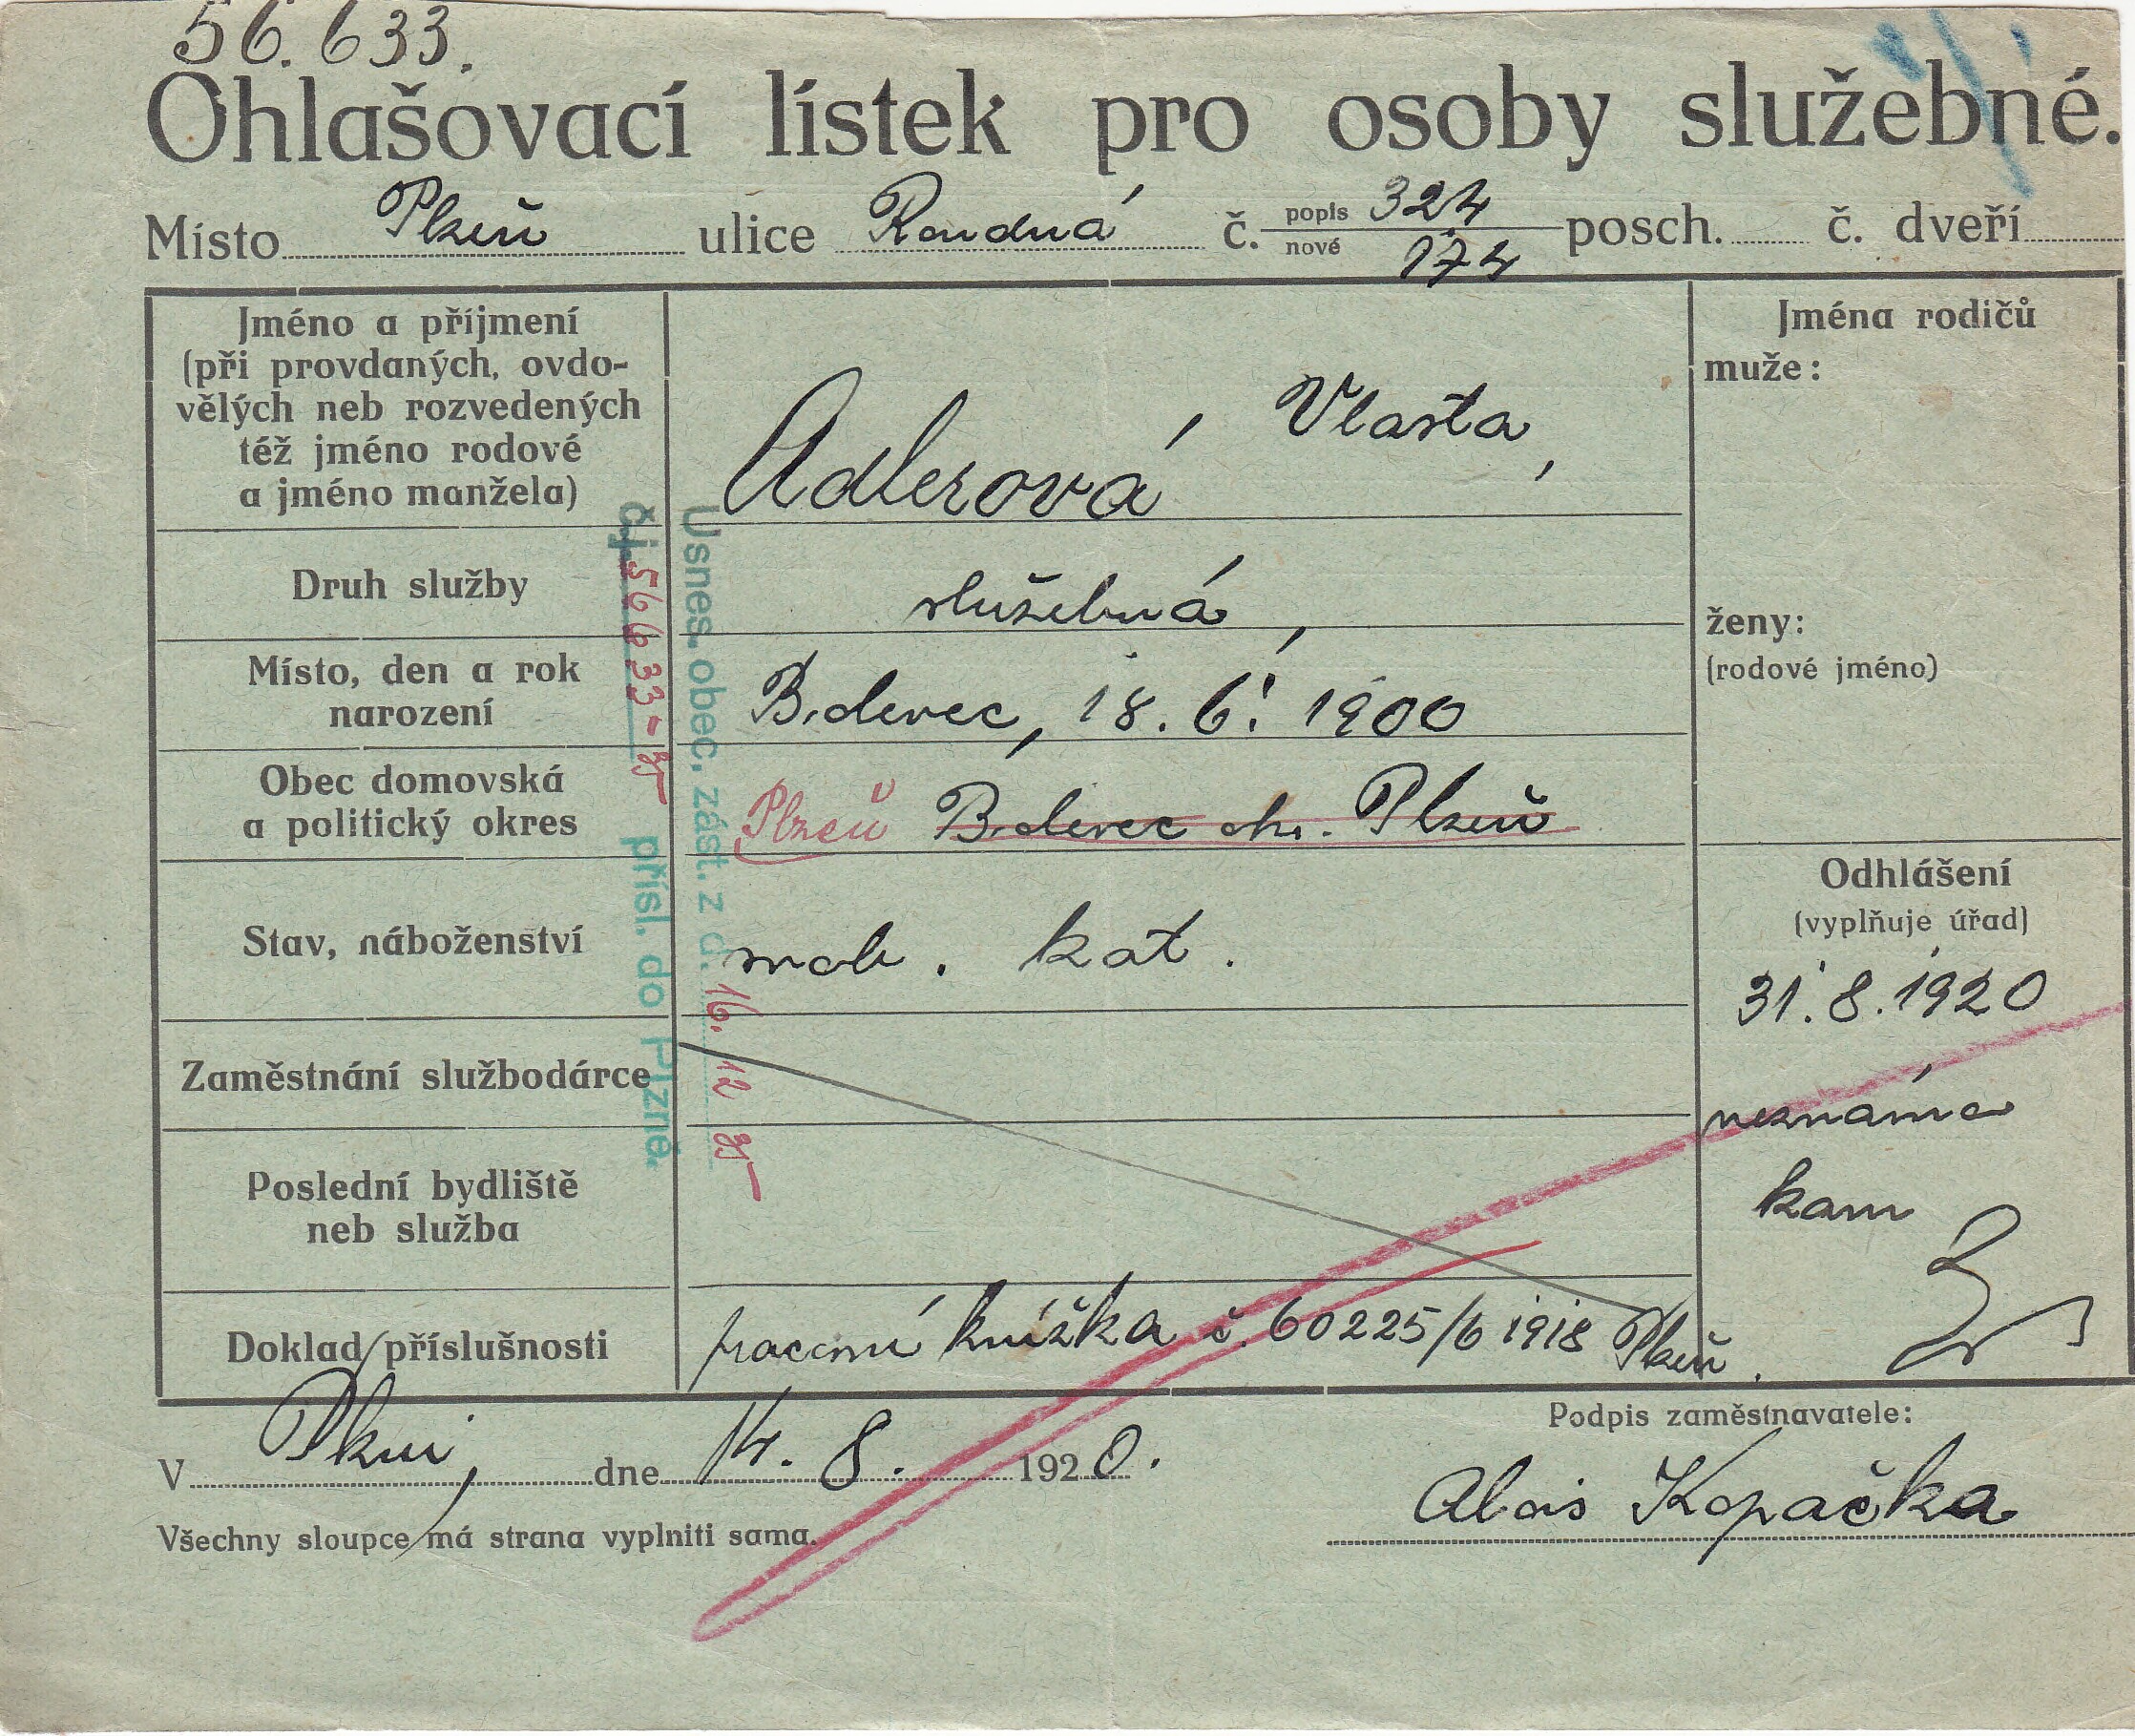 56.633.
Ohlašovací lístek pro osoby služebné.
Místo Plzeň ulice Roudná č. popis 324 nové 174 posch. č. dveří
Jméno a příjmení
(při provdaných, ovdo-
vělých neb rozvedených
též jméno rodové
a jméno manžela)
Adlerová, Vlasta,
Jména rodičů
muže:
ženy:
(rodové jméno)
Druh služby
služebná,
Místo, den a rok
narození
18. 6. 1900
Obec domovská
a politický okres
Plzeň
okr. Plzeň
Stav, náboženství
svob. kat.
Zaměstnání službodárce
Poslední bydliště
neb služba
Doklad příslušnosti
pracovní knížka č. 60225/6 1918 Plzeň.
Odhlášení
(vyplňuje úřad)
31.8.1920
neznámo
kam
Usnes. obec. zást. z d. 16. 12 35
čj. 56633-35 přísl. do Plzně.
V Plzni, dne 14. 8. 1920.
Podpis zaměstnavatele:
Alois Kopačka
Všechny sloupce má strana vyplniti sama.